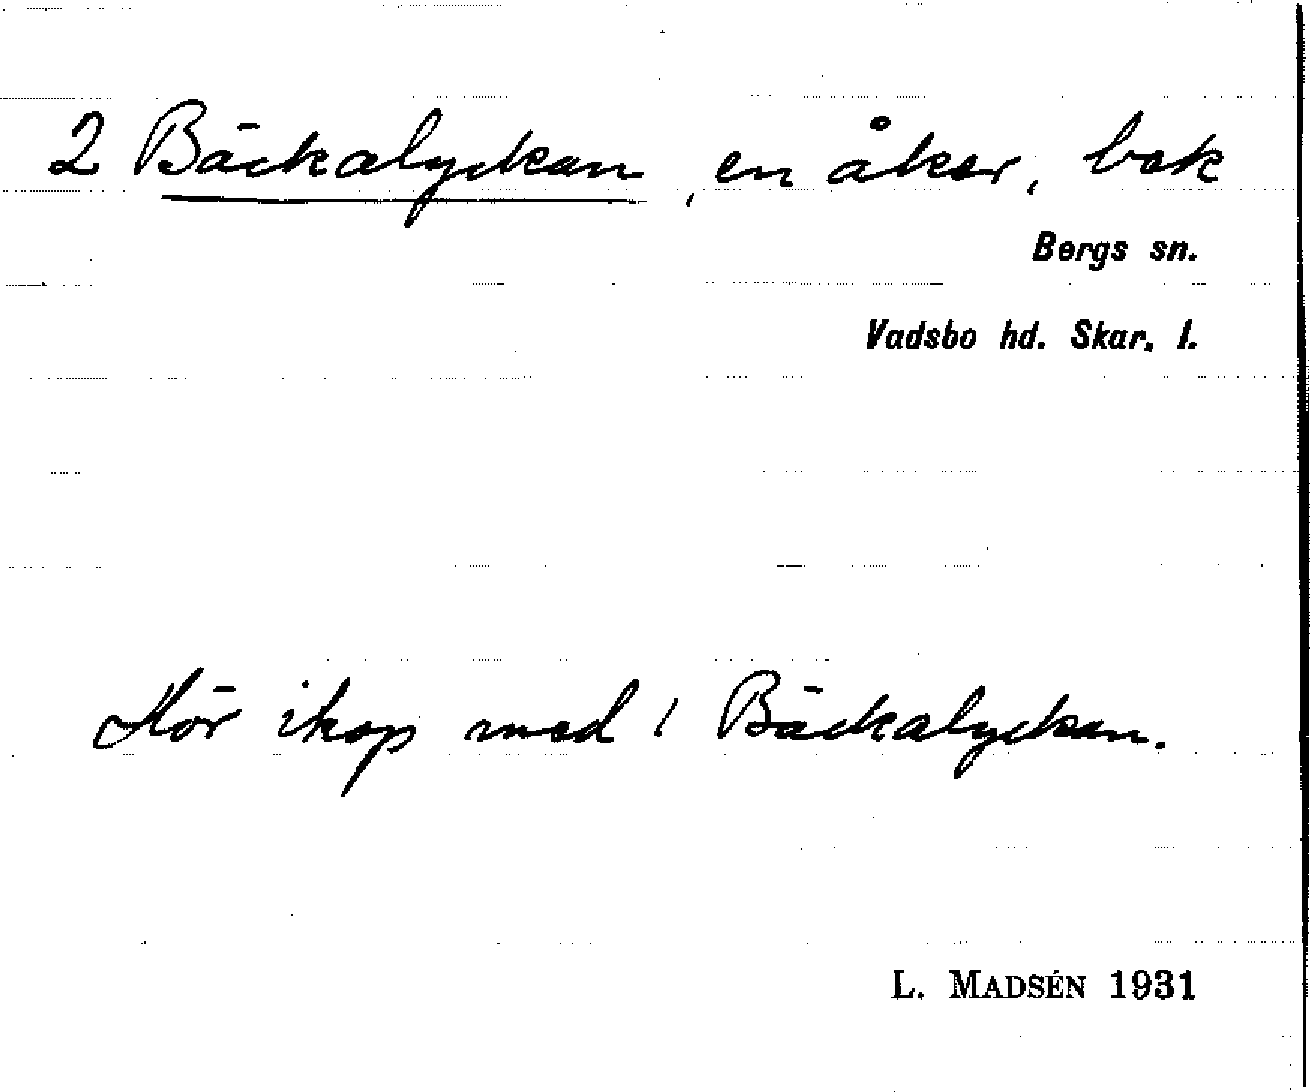 2 Bäckalyckan, en åker, bak
Bergs sn.
Vadsbo hd. Skar. l.
Hör ihop med 1 Bäckalyckan.
L. MADSÉN 1931